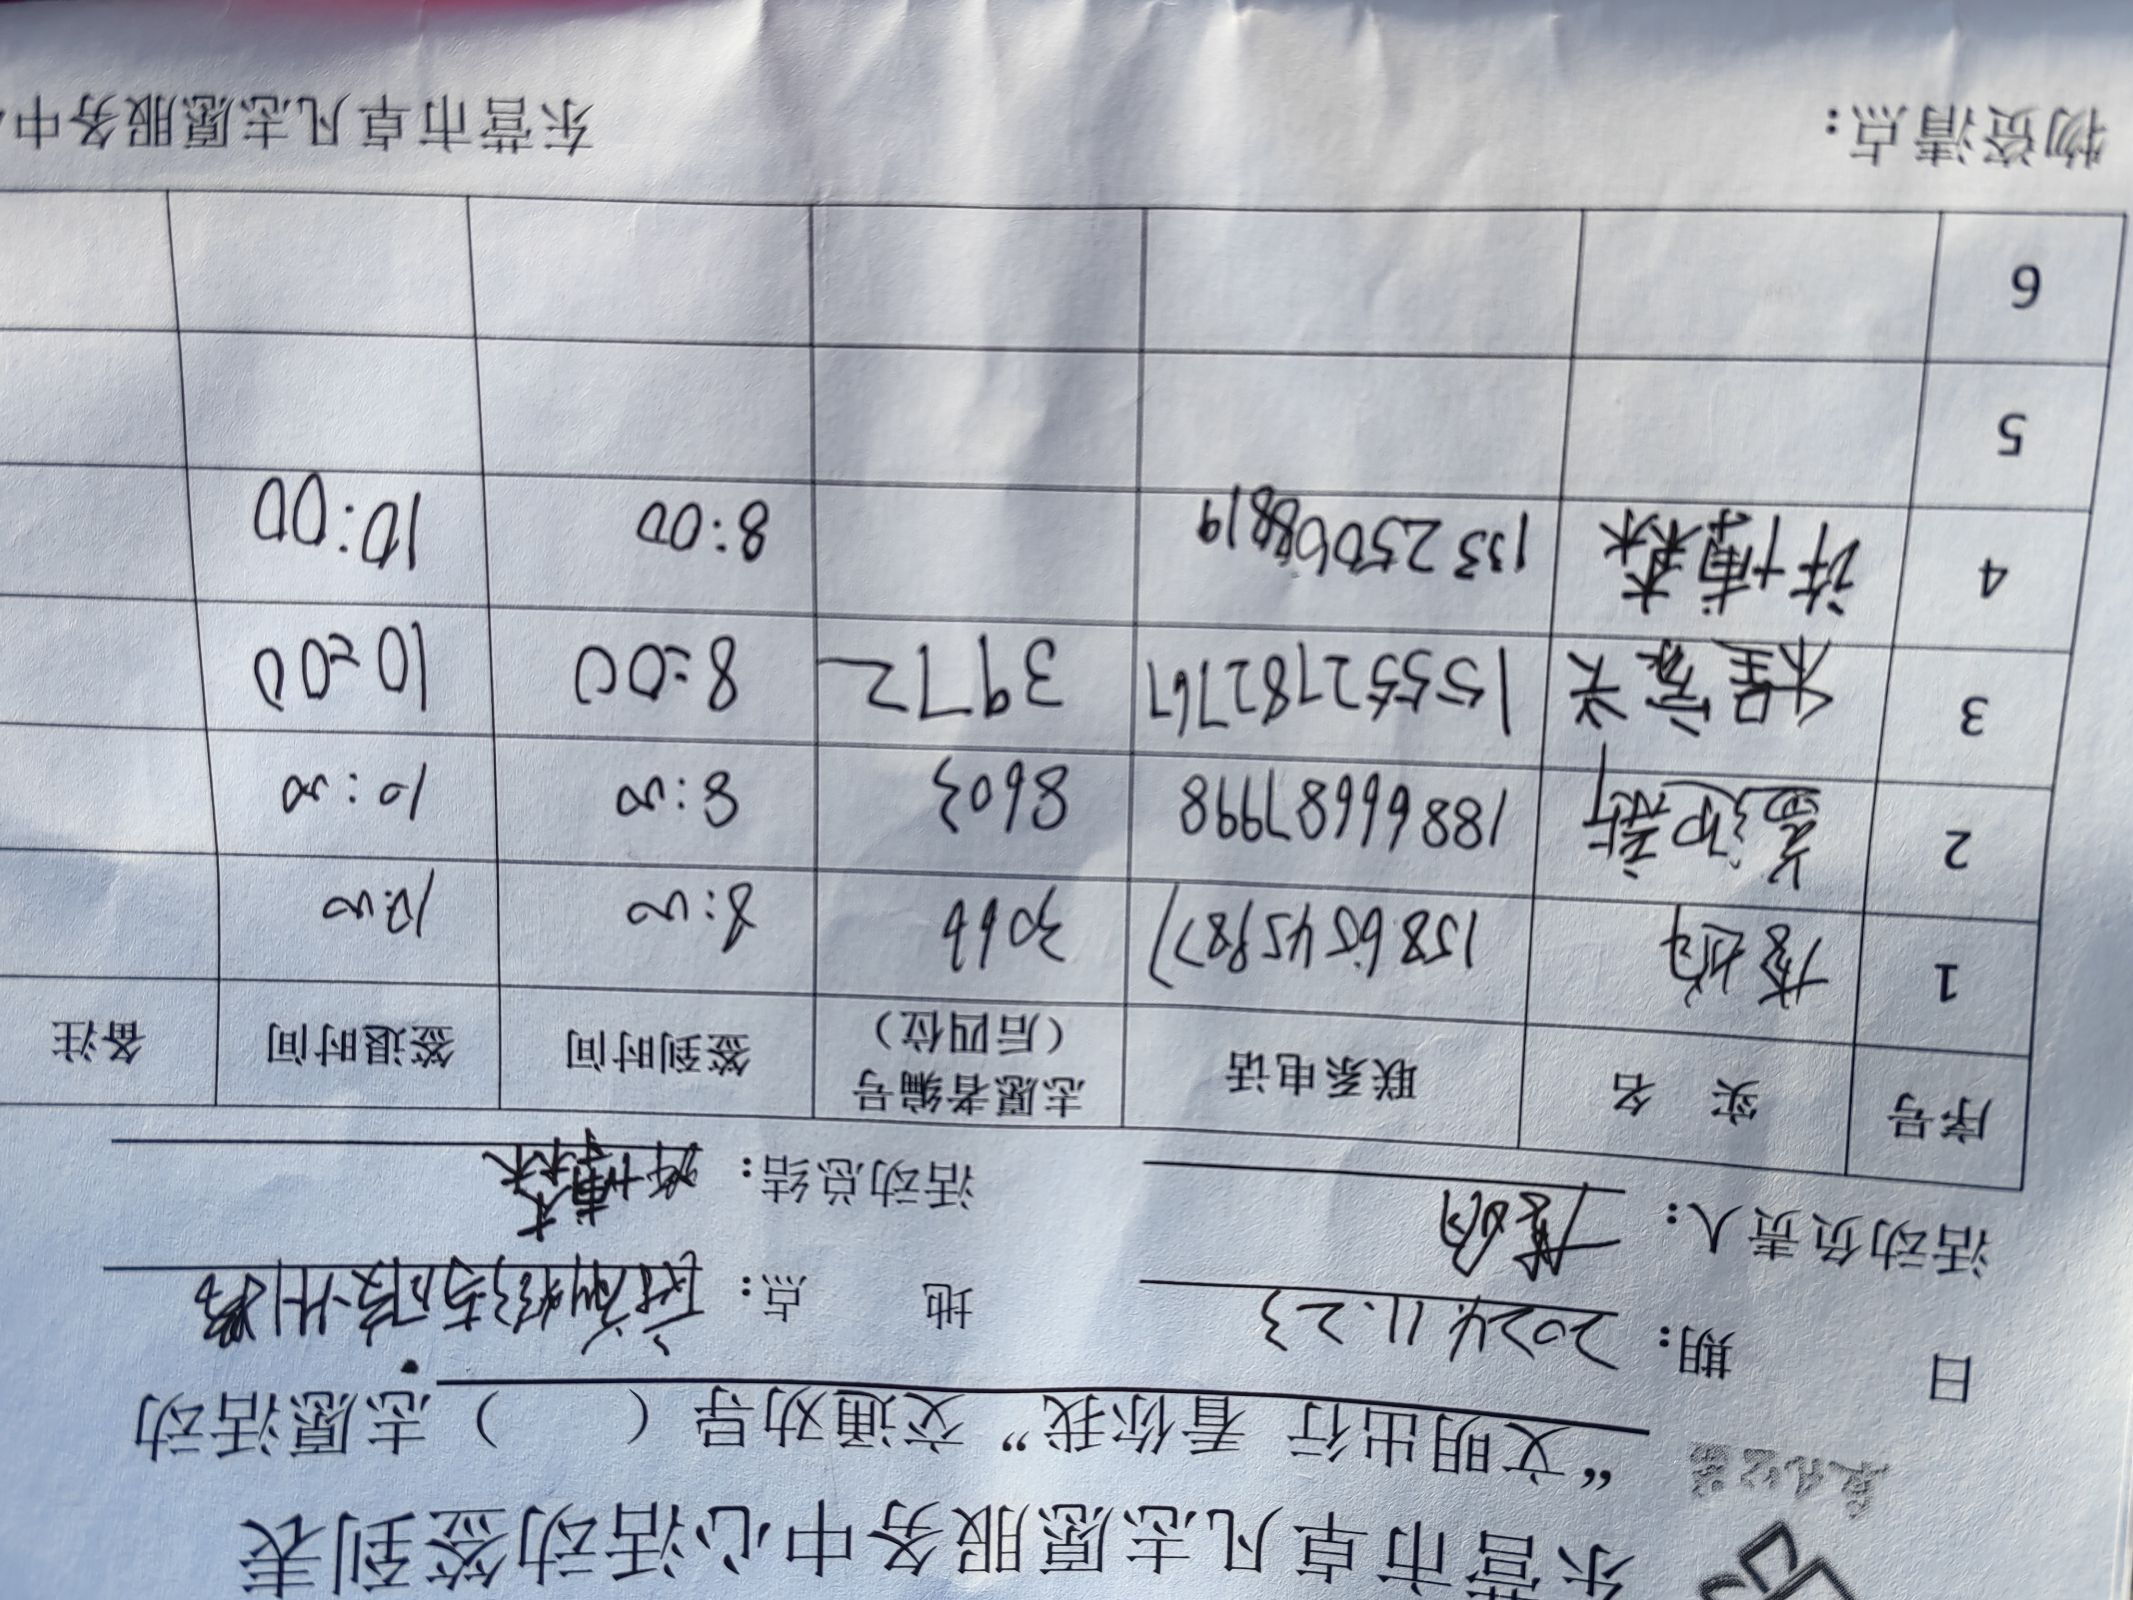 东营市卓凡志愿服务中心活动签到表
卓凡公益
“文明出行 看你我”交通劝导（ ）志愿活动
日 期：2024.11.23 地 点：
活动负责人： 活动总结：许博森
序号 实 名 联系电话 志愿者编号（后四位） 签到时间 签退时间 备注
1 15865459877 3066 8:00 10:00
2 18866687998 8603 8:00 10:00
3 15552782767 3972 8:00 10:00
4 许博森 13325008819 8:00 10:00
5
6
物资清点： 东营市卓凡志愿服务中